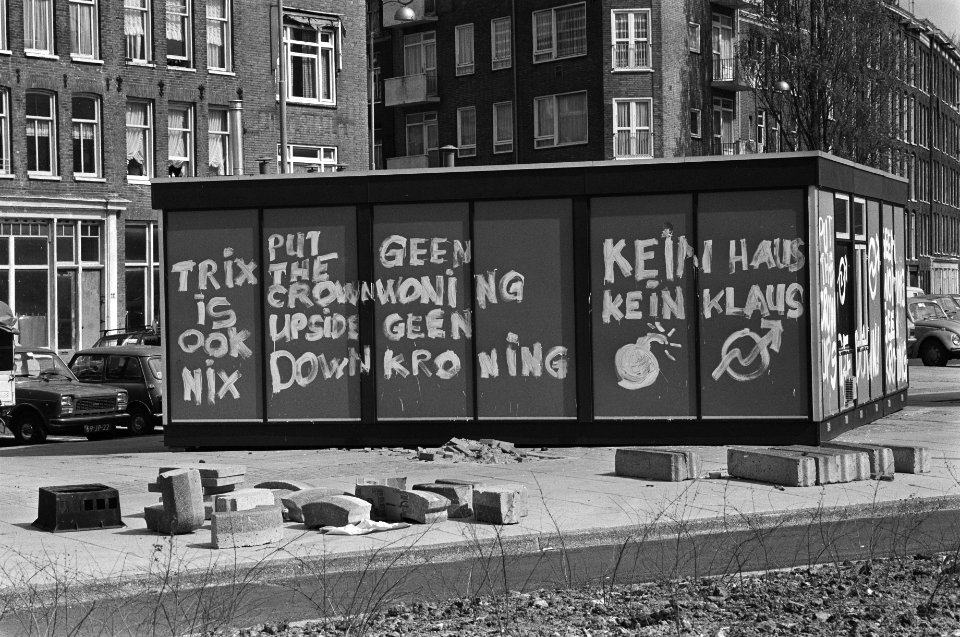 TRiX
iS
OOK
NiX
PUT
THE
CROWN
UPSIDE
DOWN
GEEN
WONiNG
GEEN
KRONiNG
KEiN HAUS
KEiN KLAUS